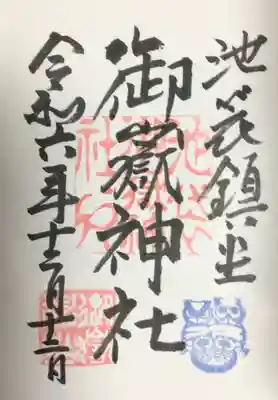 池袋鎮座
御嶽神社
令和六年十二月十二日